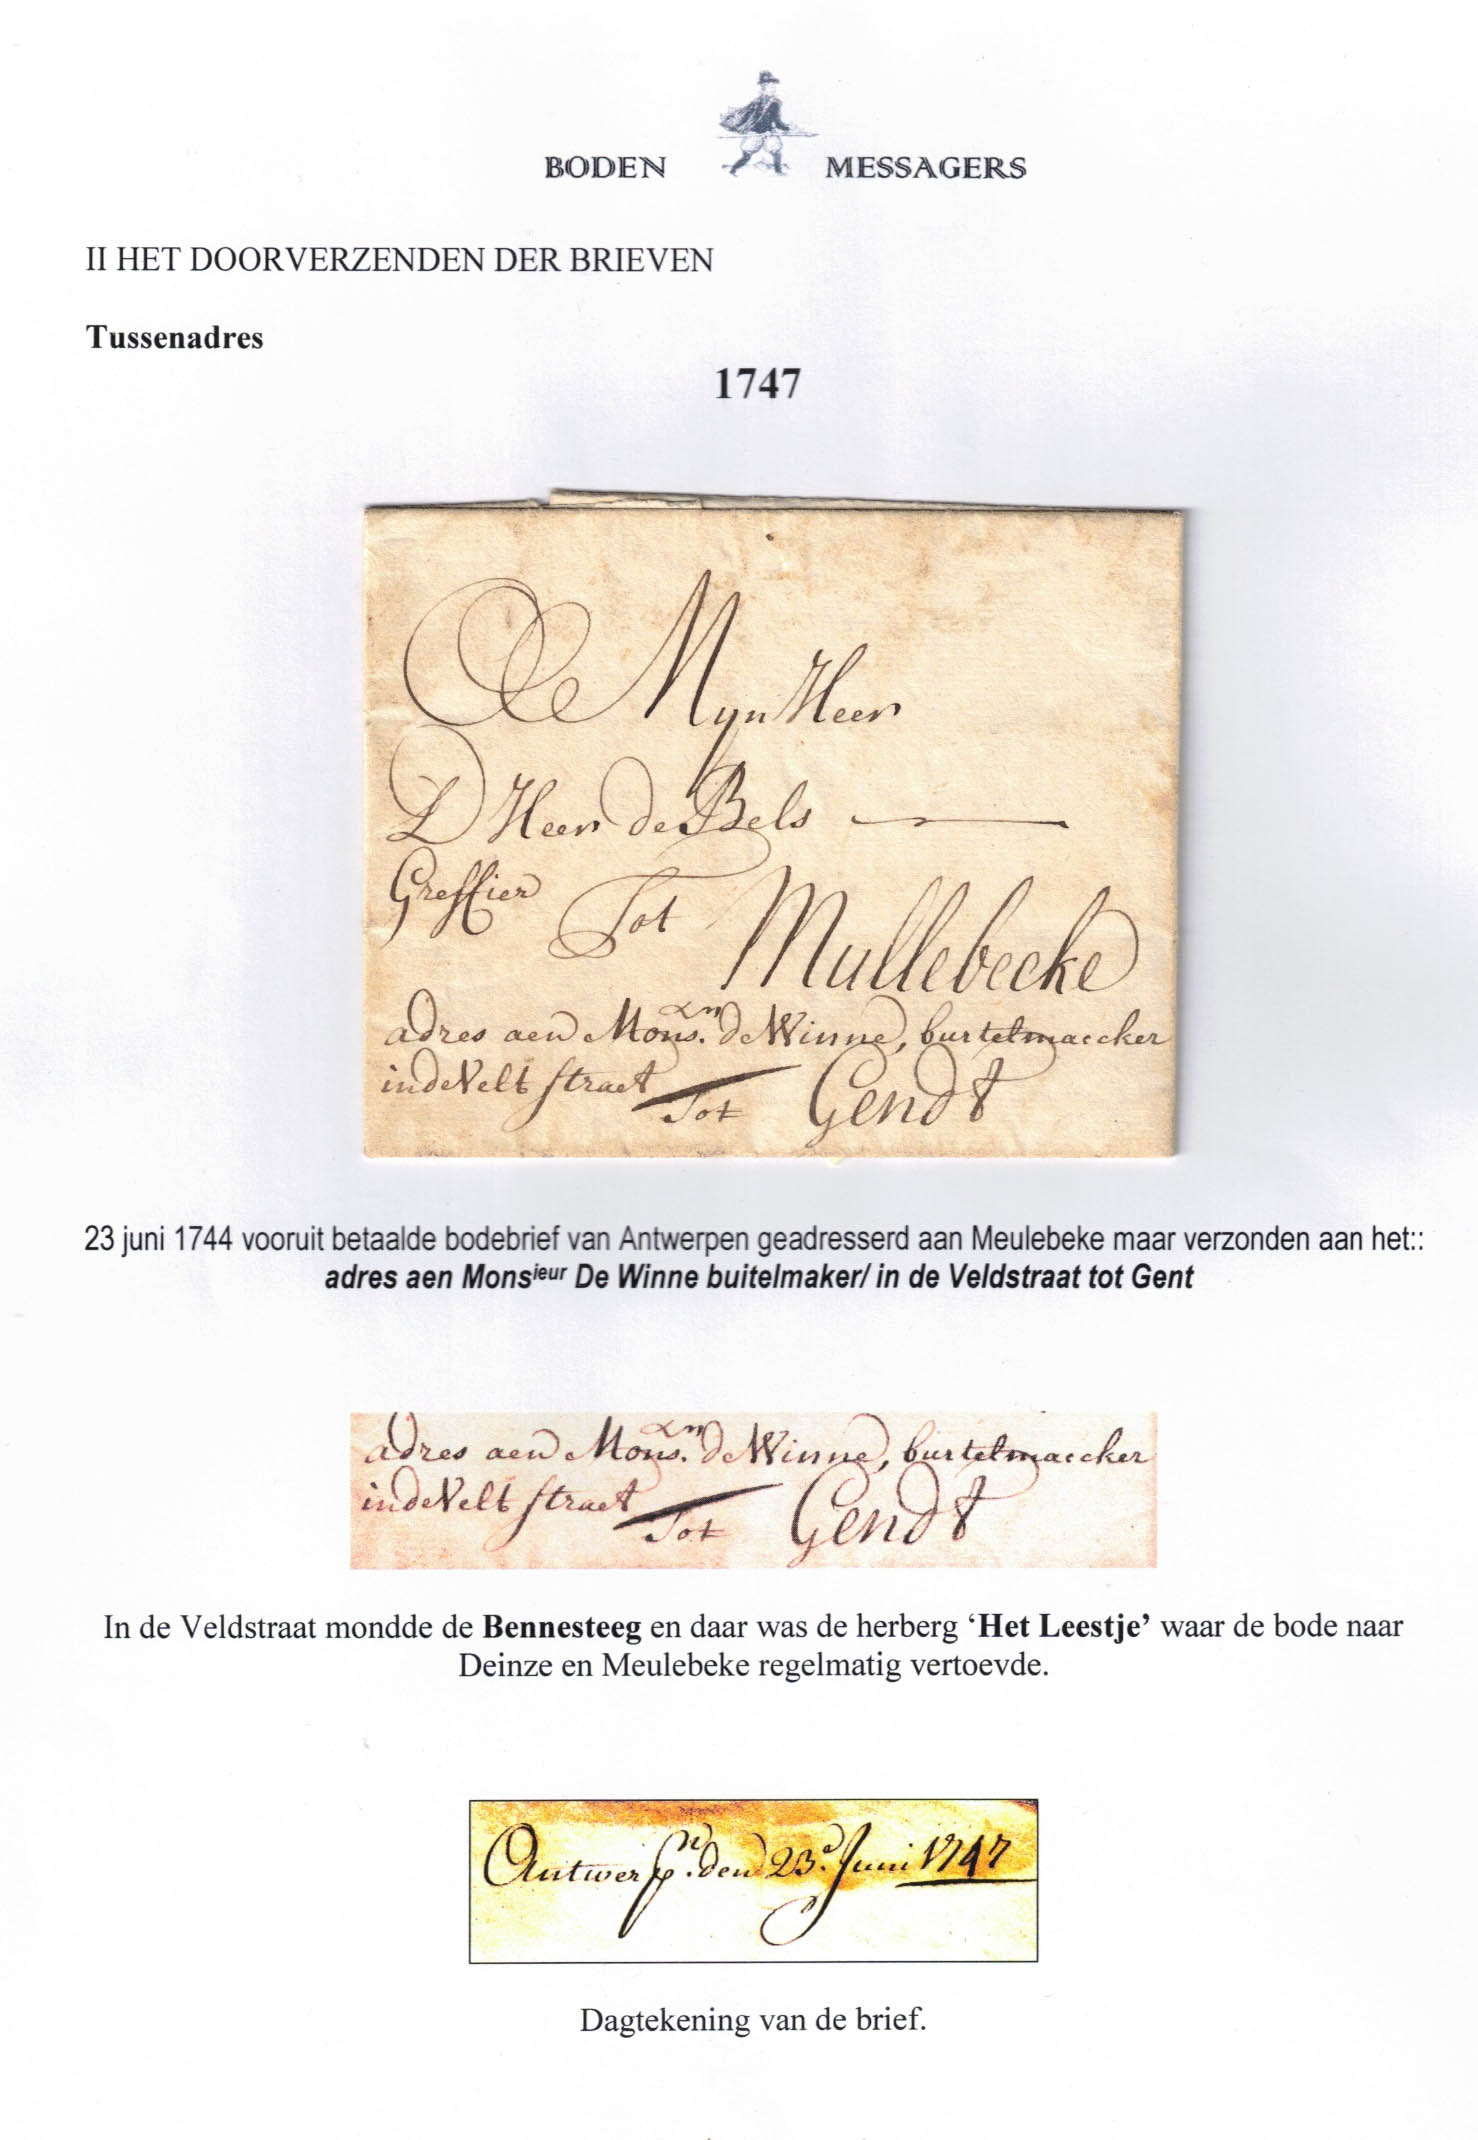 BODEN MESSAGERS
II HET DOORVERZENDEN DER BRIEVEN
Tussenadres
1747
Mijn Heer
D Heer de Bels
Greffier Tot Mullebecke
adres aen Mons. de Winne, burtelmaecker
in de Velt straet Tot Gendt
23 juni 1744 vooruit betaalde bodebrief van Antwerpen geadresserd aan Meulebeke maar verzonden aan het::
adres aen Monsieur De Winne buitelmaker/ in de Veldstraat tot Gent
adres aen Mons. de Winne, burtelmaecker
in de Velt straet Tot Gendt
In de Veldstraat mondde de Bennesteeg en daar was de herberg ‘Het Leestje’ waar de bode naar
Deinze en Meulebeke regelmatig vertoevde.
Antwerpn. den 23d. Juni 1747
Dagtekening van de brief.